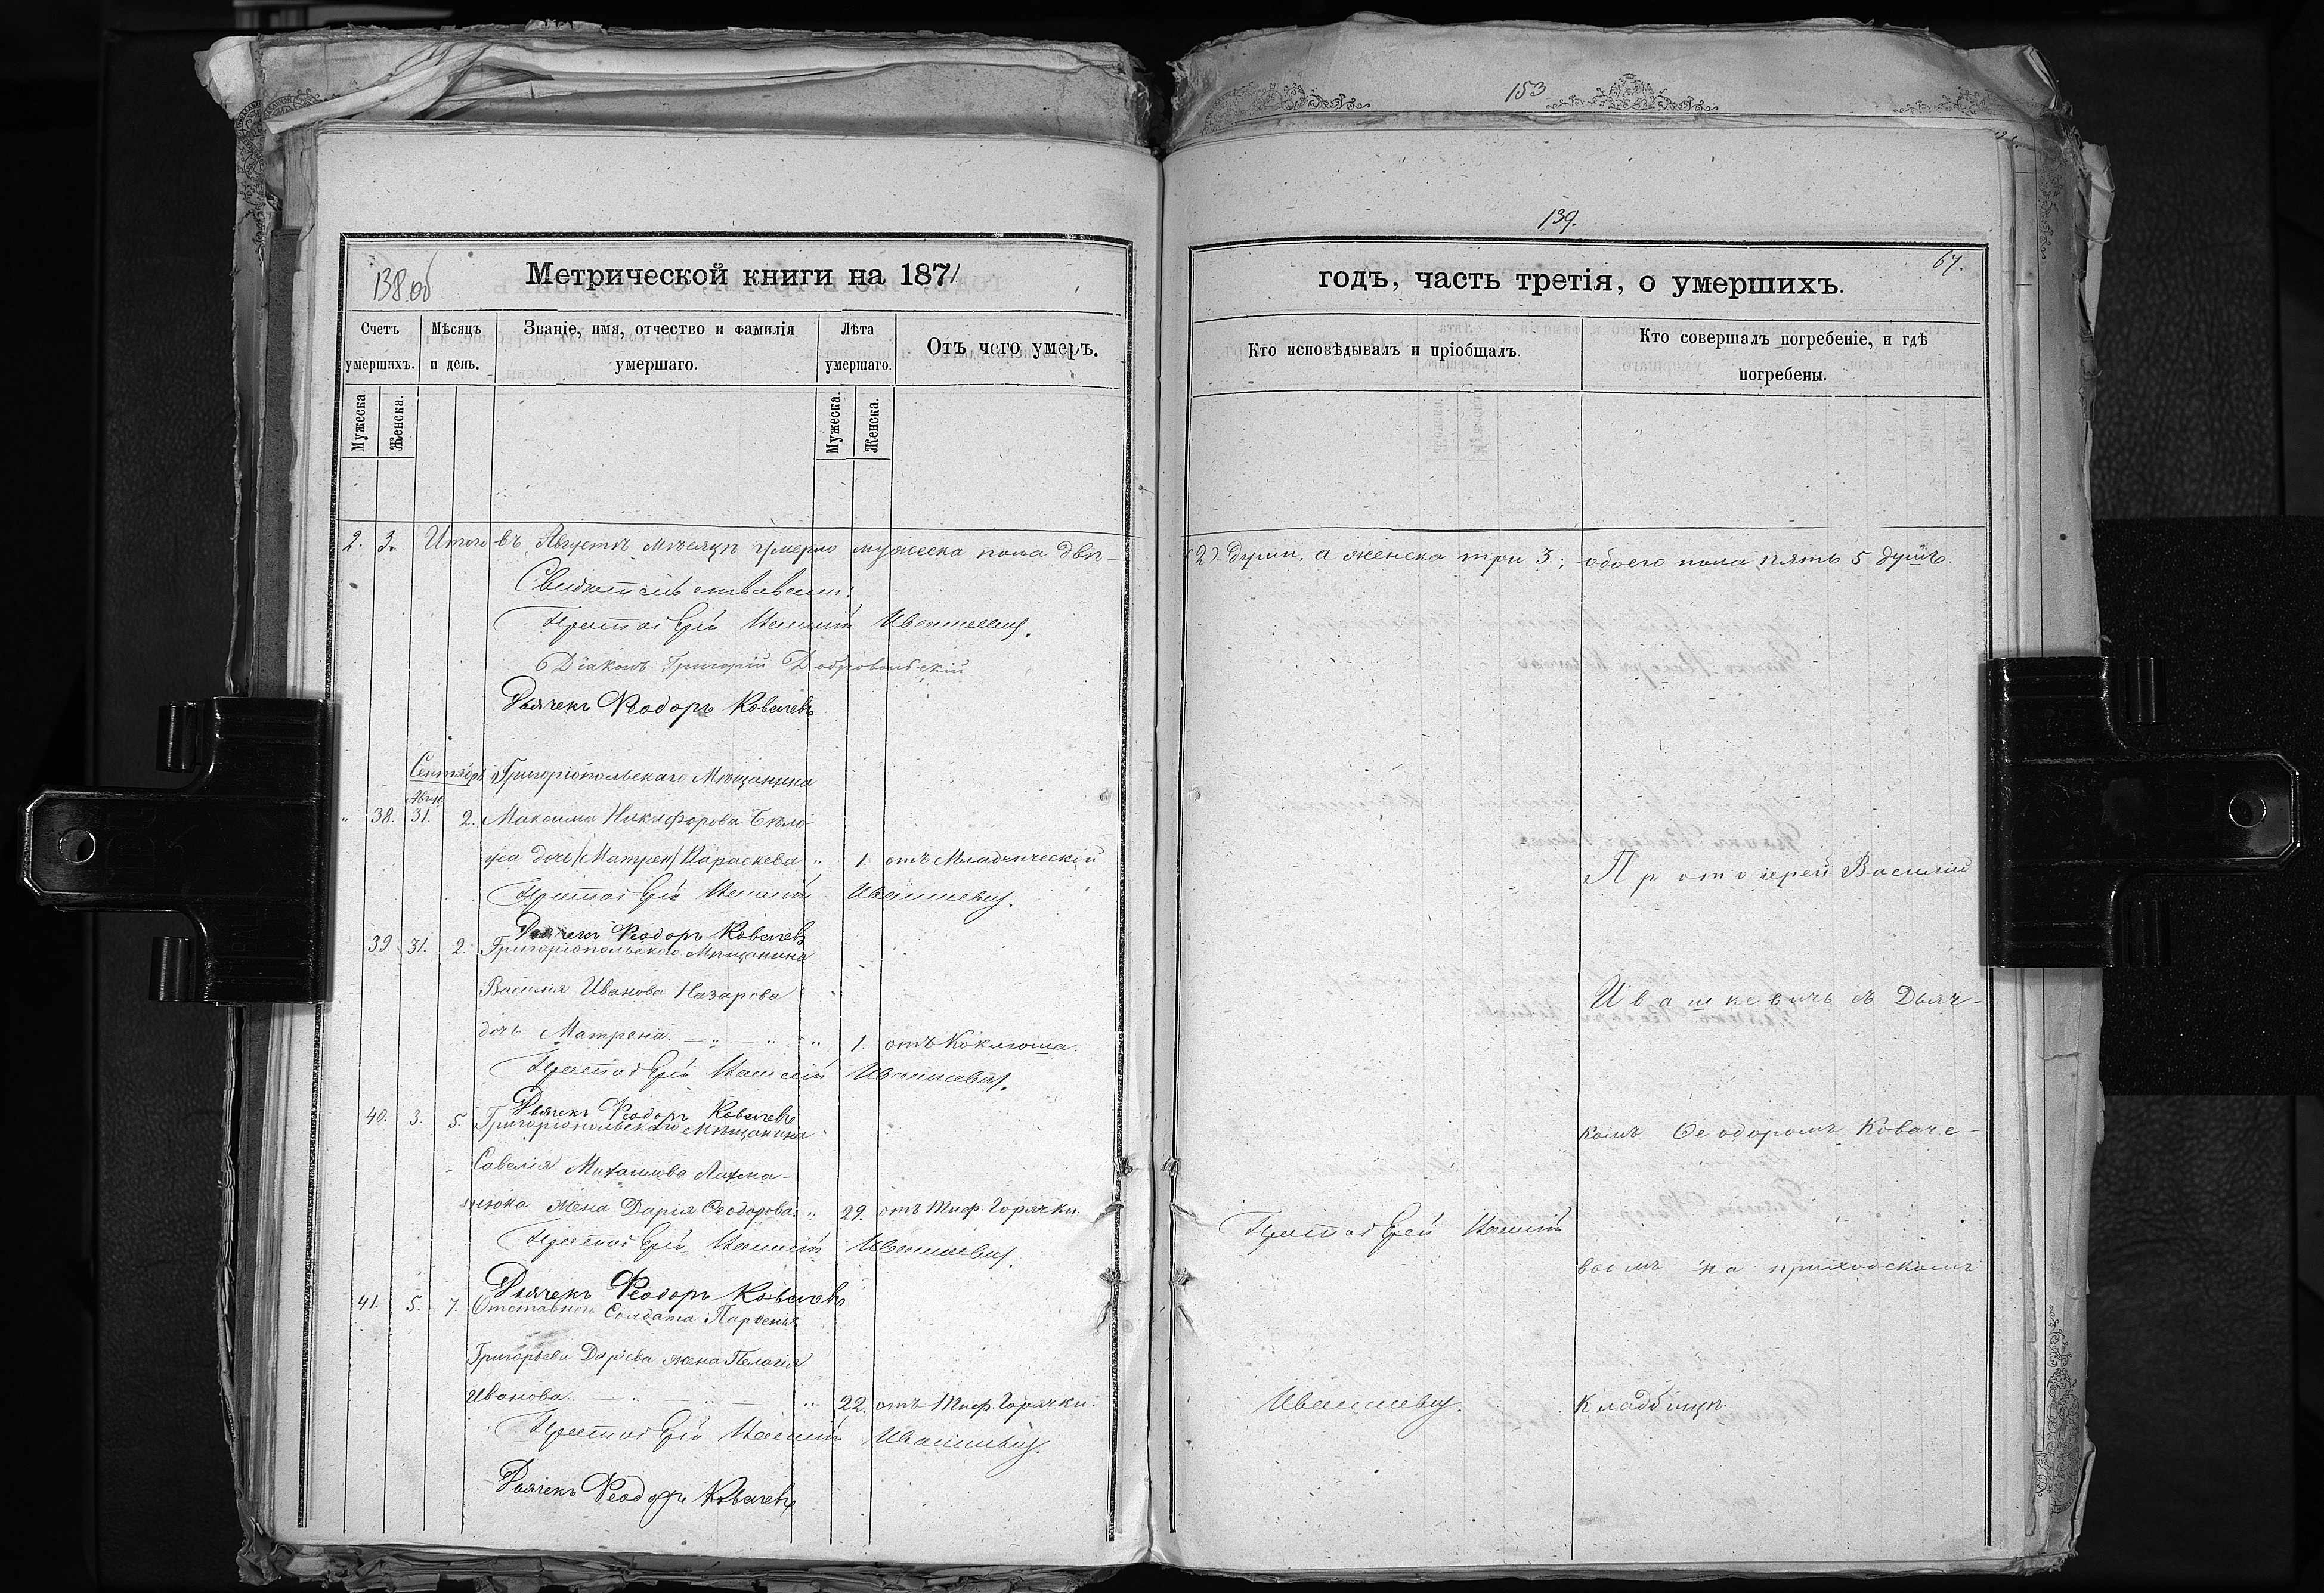 153
139.
138 об
Метрической книги на 1871
годъ, часть третія, о умершихъ.
67.
Счетъ умершихъ.
Мѣсяцъ и день.
Званіе, имя, отчество и фамилія умершаго.
Лѣта умершаго.
Отъ чего умеръ.
Кто исповѣдывалъ и пріобщалъ.
Кто совершалъ погребеніе, и гдѣ погребены.
Мужеска
Женска.
Мужеска.
Женска.
2. 3. Итого въ Августѣ мѣсяцѣ умерло мужеска пола двѣ
(2) души, а женска три 3.; обоего пола пять 5 душъ.
Свидѣтельствовали:
Протоіерей Василій Ивашкевич.
Діаконъ Григорій Добровольскій
Дьячекъ Ѳеодоръ Ковачевъ
Сентябрь Григоріопольскаго Мѣщанина
Авгус.
" 38. 31. 2. Максима Никифорова Бѣло-
уса дочь (Матрен) Параскева " 1. отъ Младенческой
Протоіерей Василій Ивашкевич.
Дьячекъ Ѳеодоръ Ковачевъ
39. 31. 2. Григоріопольскаго Мѣщанина
Василія Иванова Назарова
дочь Матрена. " 1. отъ Коклюша.
Протоіерей Василій Ивашкевич.
Дьячекъ Ѳеодоръ Ковачевъ
40. 3. 5. Григоріопольскаго Мѣщанина
Савелія Михаилова Лахма-
нюка жена Дарія Ѳеодорова " 29. отъ Тиф. Горячки.
Протоіерей Василій Ивашкевич.
Дьячекъ Ѳеодоръ Ковачевъ
41. 5. 7. Отставнаго Солдата Парѳенія
Григорьева Даріева жена Пелагія
Иванова. " 22. отъ Тиф. Горячки.
Протоіерей Василій Ивашкевич.
Дьячекъ Ѳеодоръ Ковачевъ
Протоіерей Василій
Ивашкевич.
Протоіерей Василій
Ивашкевичъ съ Дьяч-
комъ Ѳеодоромъ Коваче-
вымъ на приходскомъ
Кладбищѣ.